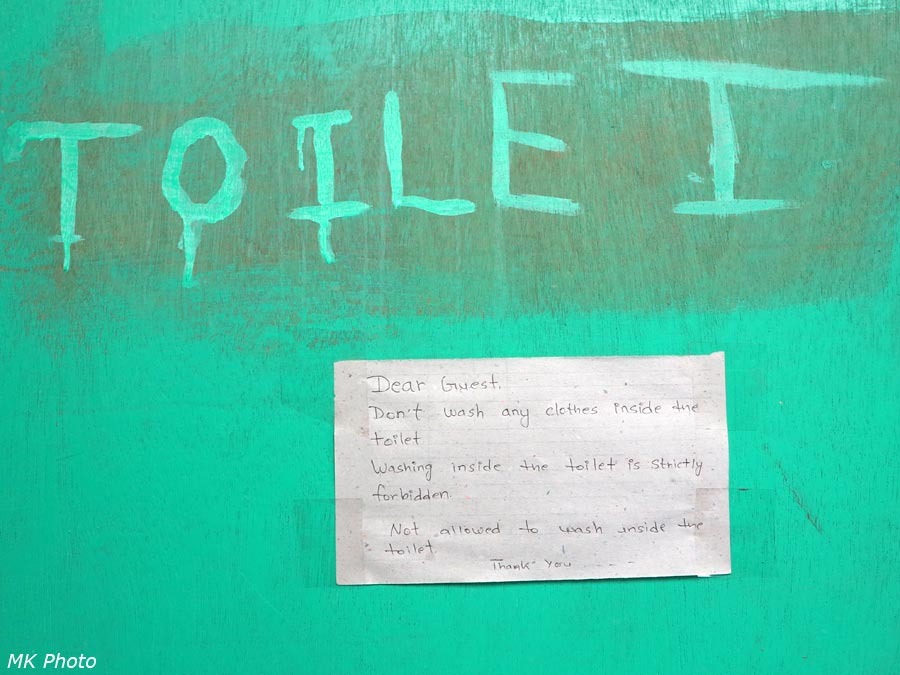 TOILET
Dear Guest,
Don't wash any clothes inside the
toilet
Washing inside the toilet is strictly
forbidden.
Not allowed to wash inside the
toilet.
Thank You - - - -
MK Photo